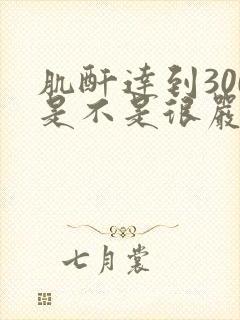 肌酐達到300
是不是很嚴
七月裳